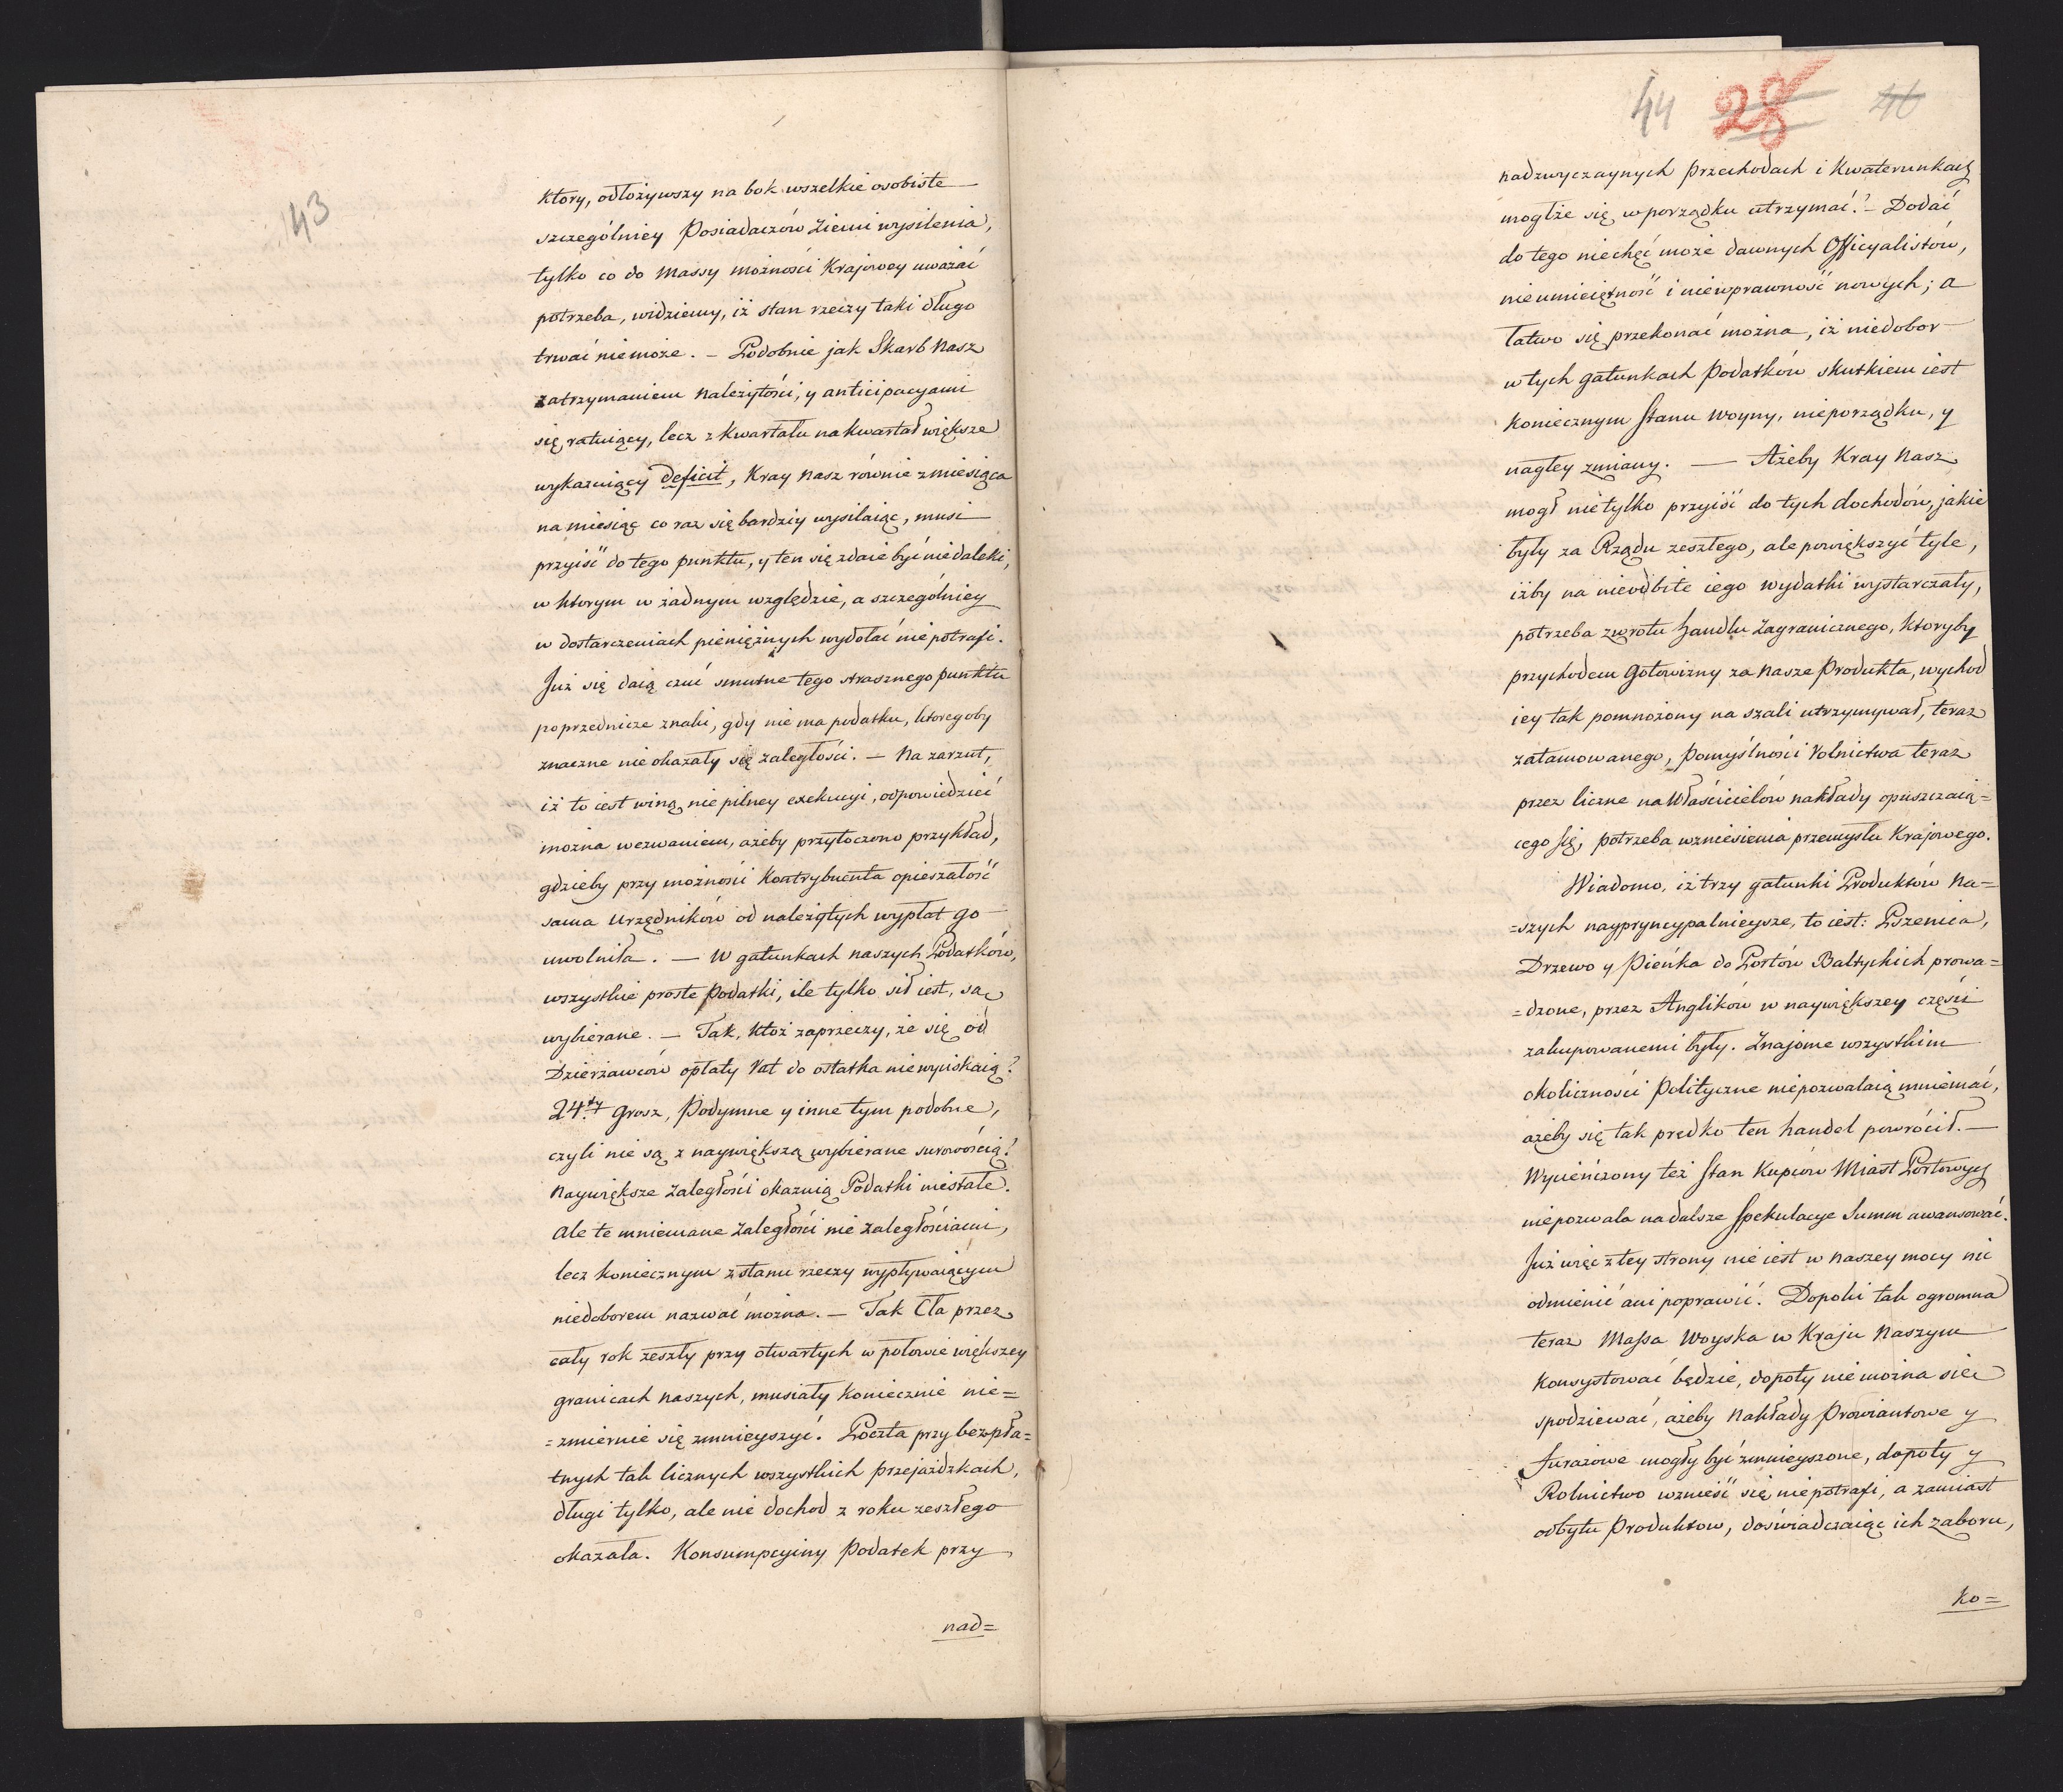 43
ktory, odłożywszy na bok wszelkie osobiste
szczególniey Posiadaczów Ziemi wysilenia,
tylko co do Massy możności Krajowey uważać
potrzeba, widziemy, iż stan rzeczy taki długo
trwać nie może. – Podobnie jak Skarb Nasz
zatrzymaniem należytości, y anticipacyami
się ratuiący, lecz z kwartału na kwartał większe
wykazuiący deficit, Kray Nasz równie z miesiąca
na miesiąc co raz się bardziey wysilaiąc, musi
przyiść do tego punktu, y ten się zdaie być niedaleki,
w ktorym w żadnym względzie, a szczególniey
w dostarczeniach pieniężnych wydołać nie potrafi.
Już się daią czuć smutne tego strasznego punktu
poprzednicze znaki, gdy nie ma podatku, ktoregoby
znaczne nie okazały się zaległości. – Na zarzut,
iż to iest winą nie pilney exekucyi, odpowiedzieć
można wezwaniem, ażeby przytoczono przykład,
gdzieby przy możności Kontrybuenta opieszałość
sama Urzędników od należytych wypłat go
uwolniła. – W gatunkach naszych Podatków,
wszystkie proste Podatki, ile tylko sił iest, są
wybierane. – Tak, któż zaprzeczy, że się od
Dzierżawców opłaty Rat do ostatka nie wyciskaią?
24ty Grosz, Podymne y inne tym podobne,
czyli nie są z naywiększą wybierane surowością?
Naywiększe Zaległości okazuią Podatki niestałe.
Ale te mniemane Zaległości nie Zaległościami,
lecz koniecznym z stanu rzeczy wypływaiącym
niedoborem nazwać można. – Tak Cła przez
cały rok zeszły przy otwartych w połowie większey
granicach naszych, musiały koniecznie nie=
=zmiernie się zmnieyszyć. Poczta przy bezpła=
tnych tak licznych wszystkich przejażdzkach,
długi tylko, ale nie dochod z roku zeszłego
okazała. Konsumpcyiny Podatek przy
nad=
44 28 46
nadzwyczaynych Przechodach i Kwaterunkach
mogłże się w porządku utrzymać? – Dodać
do tego niechęć może dawnych Officyalistów,
nieumieiętność i niewprawność nowych; a
łatwo się przekonać można, iż niedobor
w tych gatunkach Podatków skutkiem iest
koniecznym Stanu Woyny, nieporządku, y
nagłey zmiany. — Ażeby Kray Nasz
mogł nie tylko przyiść do tych dochodów, jakie
były za Rządu zeszłego, ale powiększyć tyle,
iżby na nieodbite iego wydatki wystarczały,
potrzeba zwrotu Handlu Zagranicznego, ktoryby
przychodem Gotowizny za Nasze Produkta, wychod
iey tak pomnożony na szali utrzymywał, teraz
zatamowanego, Pomyślności Rolnictwa teraz
przez liczne na Właścicielów nakłady opuszczaią=
cego się, potrzeba wzniesienia przemysłu Krajowego.
Wiadomo, iż trzy gatunki Produktów Na=
=szych naypryncypalnieysze, to iest: Pszenica,
Drzewo y Pieńka do Portów Baltyckich prowa=
=dzone, przez Anglików w naywiększey części
zakupowanemi były. Znajome wszystkim
okoliczności Polityczne nie pozwalaią mniemać,
ażeby się tak prędko ten handel powrócił. —
Wycieńczony też Stan Kupców Miast Portowych
nie pozwala na dalsze Spekulacye Summ awansować.
Już więc z tey strony nie iest w naszey mocy nic
odmienić ani poprawić. Dopoki tak ogromna
teraz Massa Woyska w Kraju Naszym
konsystować będzie, dopoty nie można się
spodziewać, ażeby Nakłady Prowiantowe y
Furażowe mogły być zmnieyszone, dopoty y
Rolnictwo wznieść się nie potrafi, a zamiast
odbytu Produktow, doświadczaiąc ich zaboru,
ko=